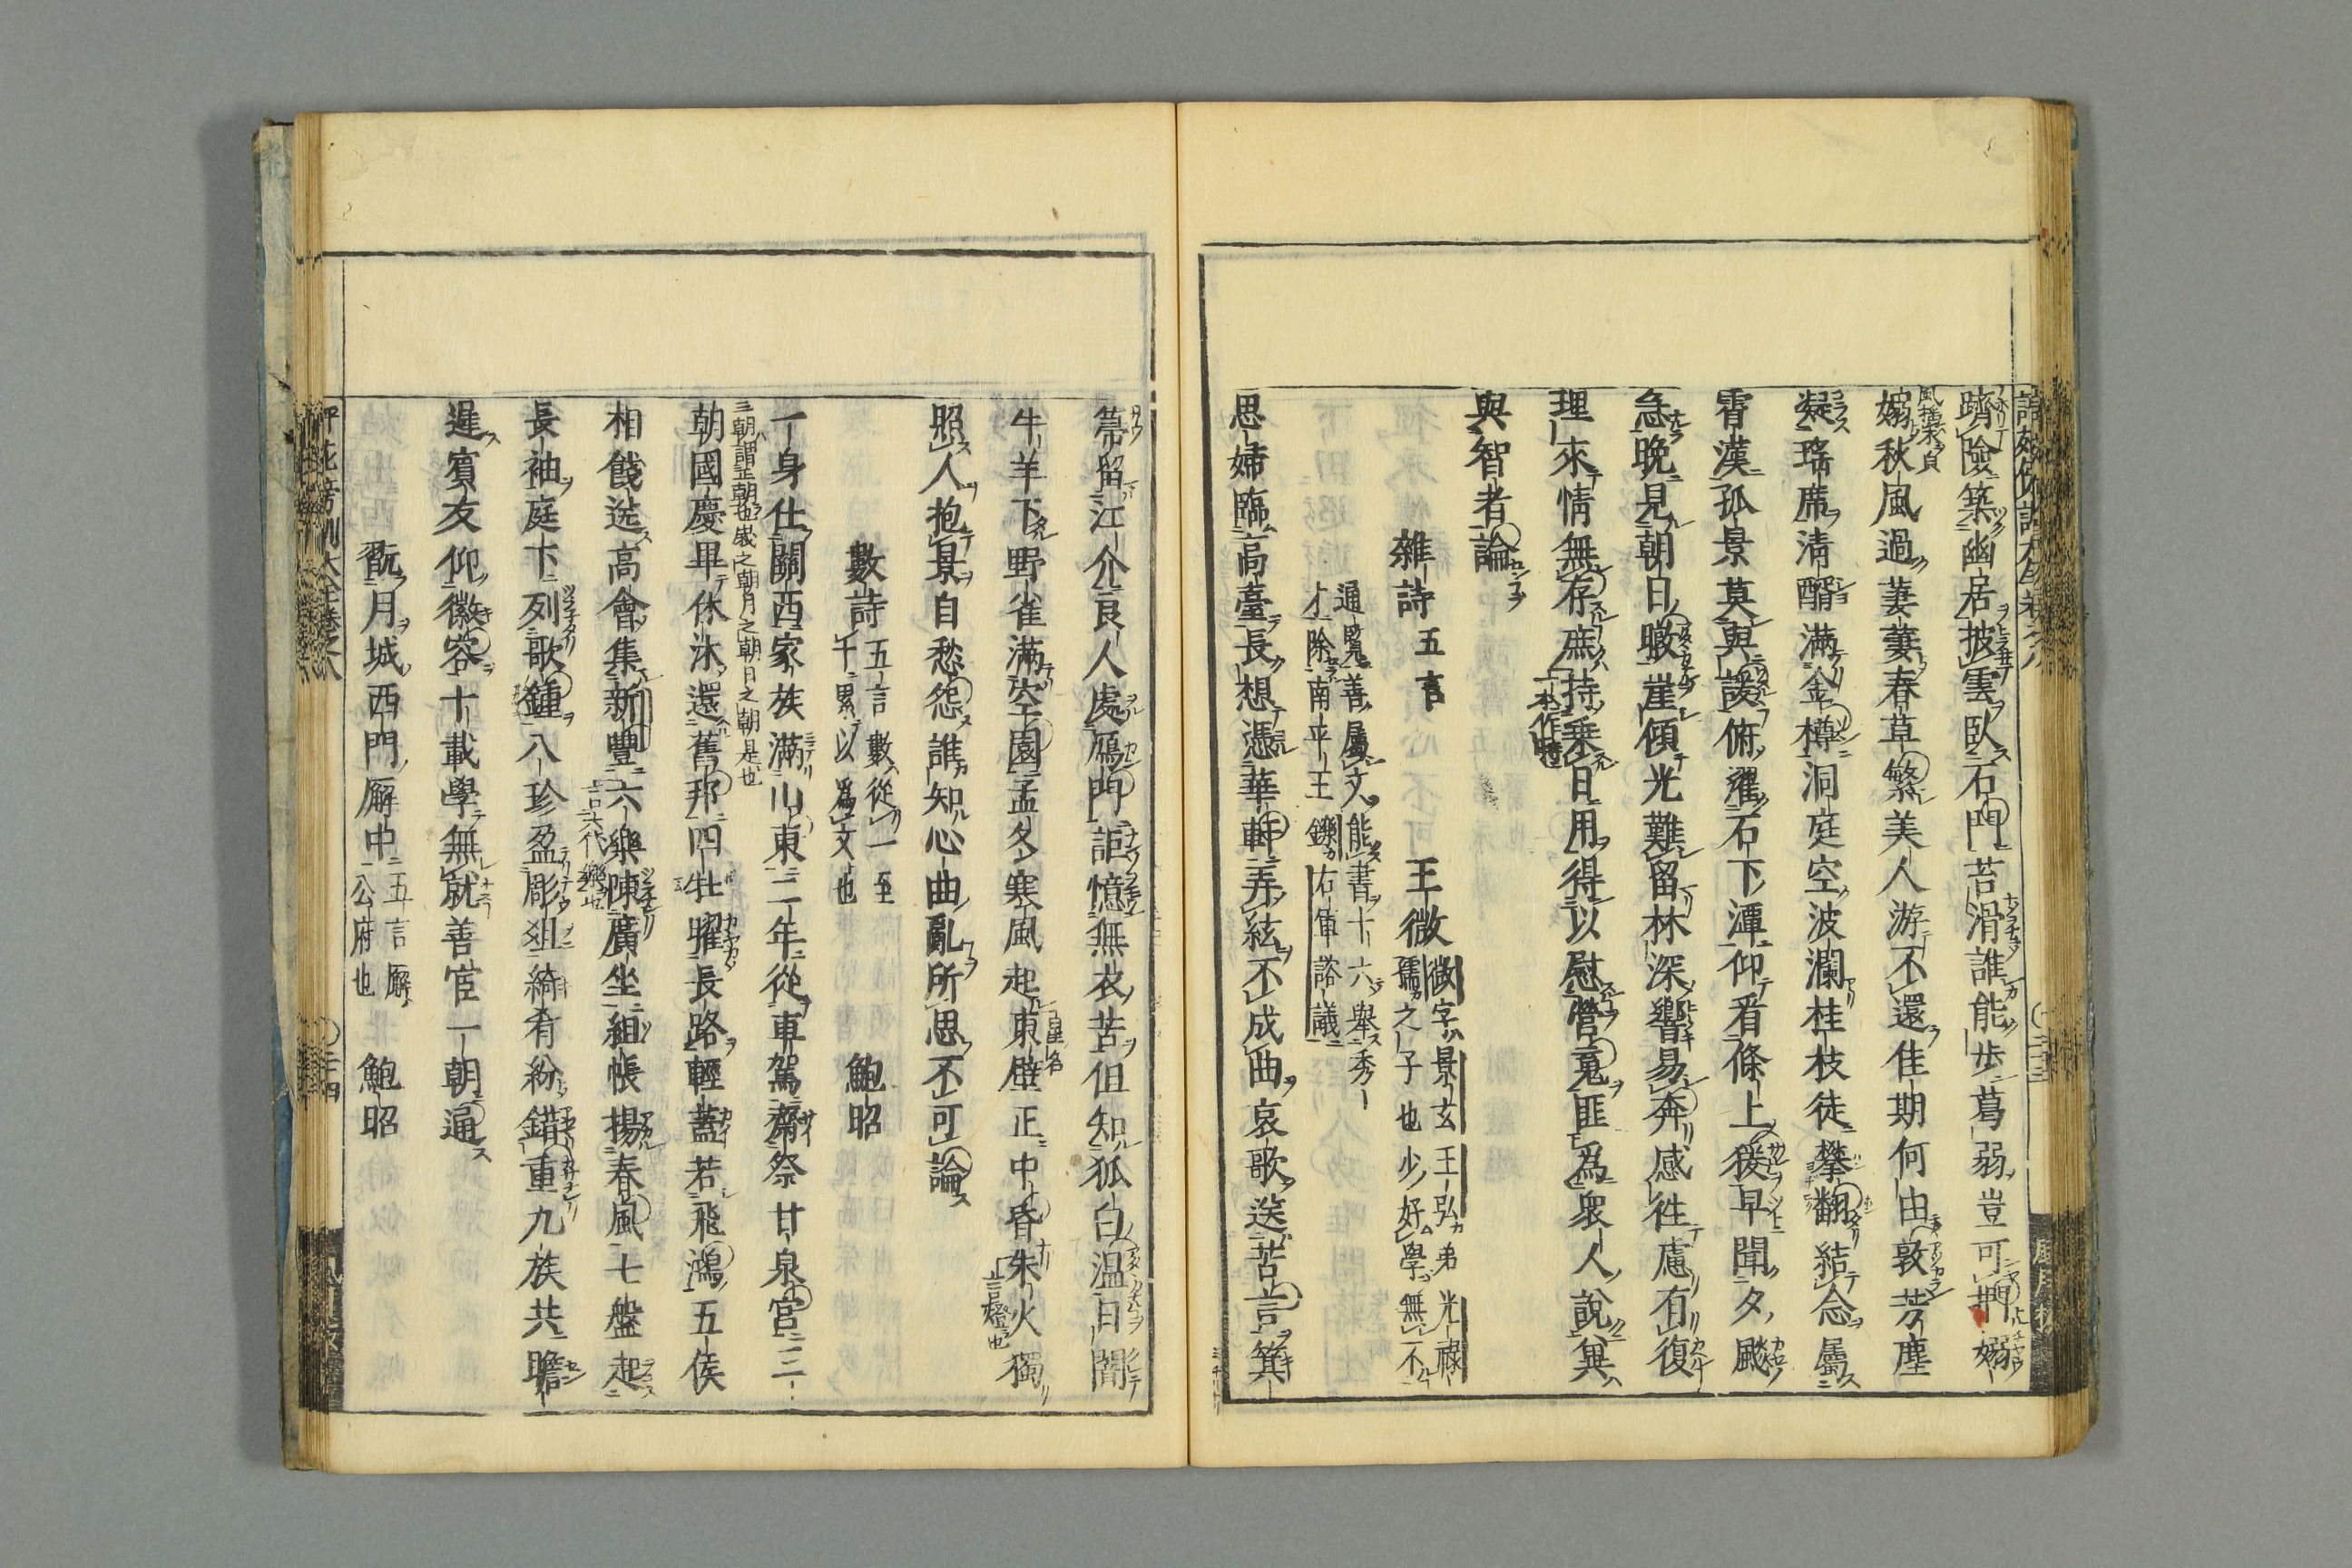 躋險築幽居披雲臥石門苔滑誰能步葛弱豈可捫嫋
嫋秋風過萋萋春草繁美人游不還佳期何由敦芳塵
凝瑤席清醑滿金樽洞庭空波瀾桂枝徒攀翻結念屬
霄漢孤景莫與諼俯濯石下潭仰看條上猨早聞夕飈
急晚見朝日暾崖傾光難留林深響易奔感徃慮有復
理來情無存庶持乗日用得以慰營䰟匪爲衆人說兾
一本作時
與智者論
雜詩五言 王微
微字景玄王弘弟光祿
孺之子也少好學無不
通覧善属文能書十六舉秀
才除南平王鑠右軍諮議
思婦臨高臺長想憑華軒弄絃不成曲哀歌送苦言箕
箒留江介良人處鴈門詎憶無衣苦但知狐白温日闇
牛羊下野雀滿空園孟冬寒風起東壁正中昏朱火獨
照人抱景自愁怨誰知心曲亂所思不可論
數詩 鮑昭
五言數從一至
十累以爲文也
一身仕關西家族滿山東二年從車駕齋祭甘泉宮三
三朝謂正朝也歳之朝月之朝日之朝是也
朝國慶畢休沐還舊邦四牡曜長路輕蓋若飛鴻五侯
相餞送高會集新豐六樂陳廣坐組帳揚春風七盤起
長袖庭下列歌鍾八珍盈彫俎綺肴紛錯重九族共瞻
遲賓友仰徽容十載學無就善宦一朝通
翫月城西門廨中 鮑昭
五言廨
公府也